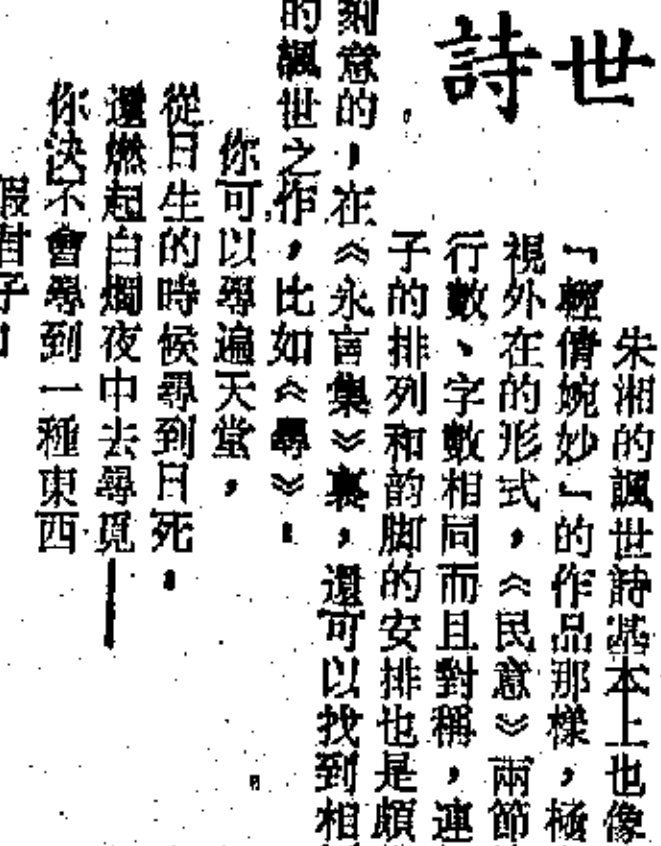 世
詩
朱湘的諷世詩基本上也像
「輕倩婉妙」的作品那樣，極
視外在的形式，《民意》兩節
行數、字數相同而且對稱，連
子的排列和韵脚的安排也是頗
刻意的，在《永言集》裏，還可以找到相
的諷世之作，比如《尋》：
你可以尋遍天堂，
從日生的時候尋到日死，
還燃起白燭夜中去尋覓——
你決不會尋到一種東西
假君子